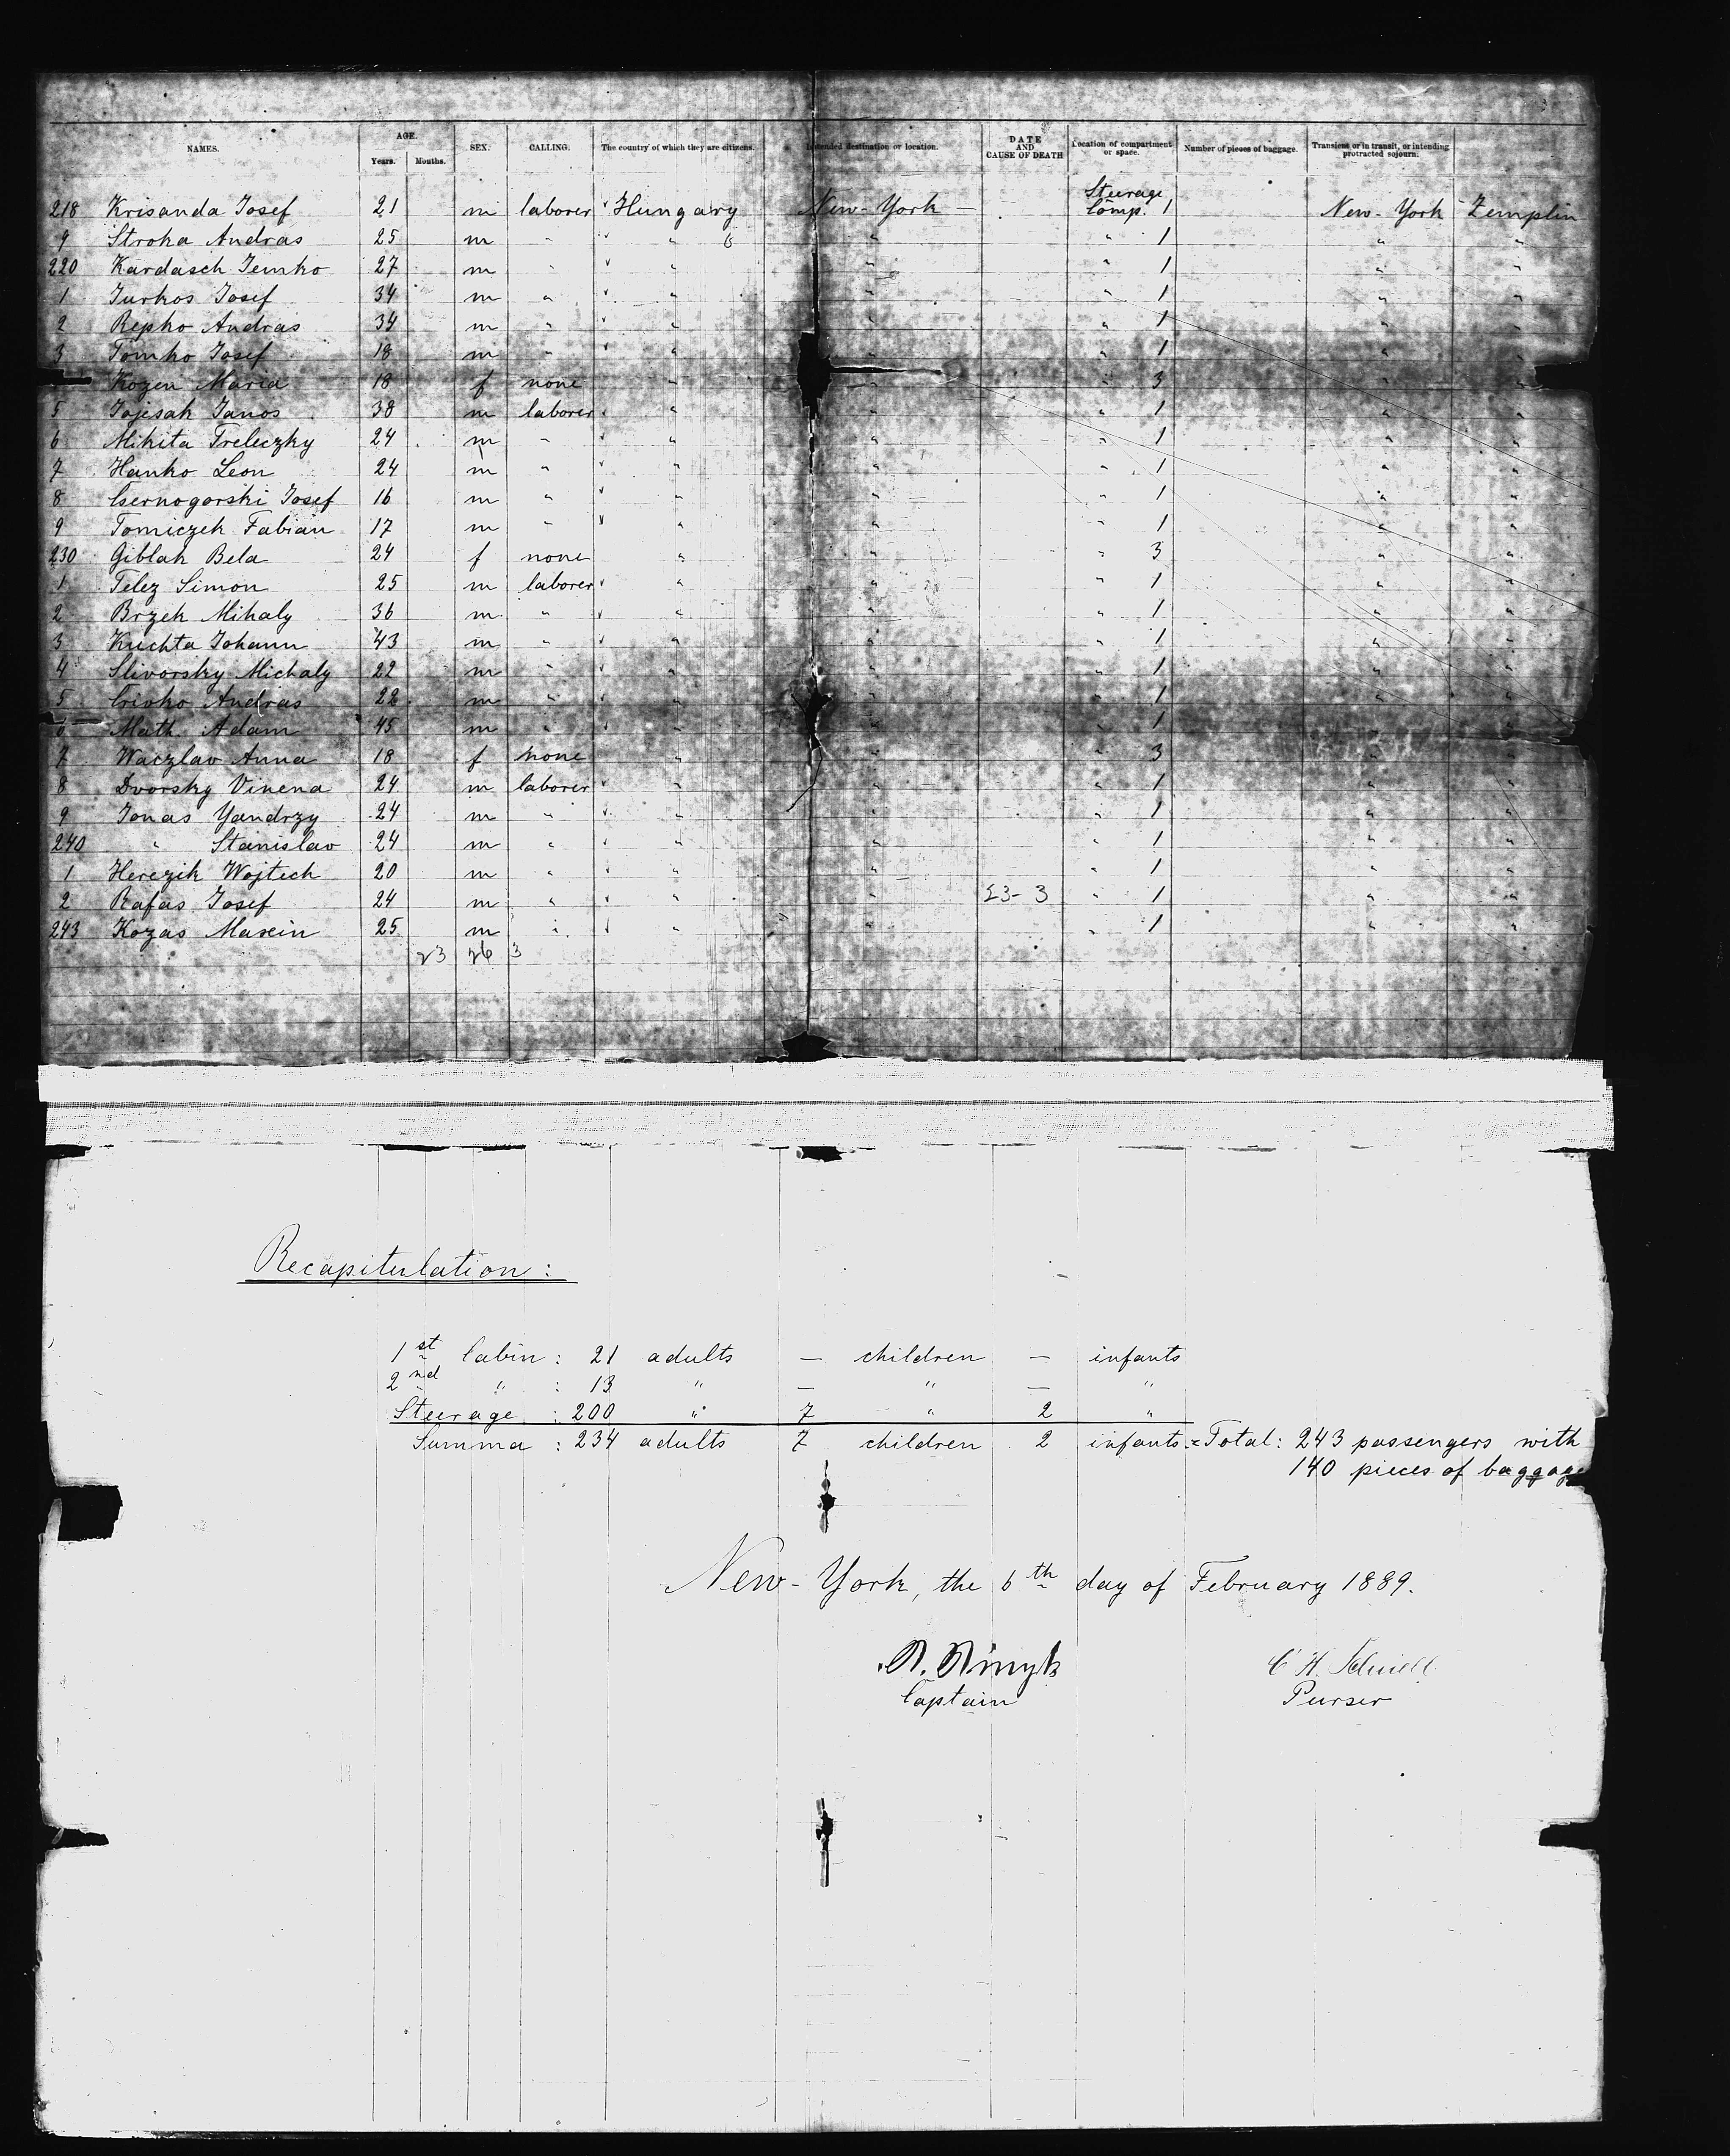 NAMES. AGE. Years. Months. SEX. CALLING. The country of which they are citizens. Intended destination or location. DATE AND CAUSE OF DEATH Location of compartment or space. Number of pieces of baggage. Transient or in transit, or intending protracted sojourn.
218 Krisanda Josef 21 m laborer Hungary New-York Steerage Comp. 1 New-York Zemplin
9 Stroka Andras 25 m " " " " 1 " "
220 Kardasch Jemko 27 m " " " " 1 " "
1 Jurkos Josef 34 m " " " " 1 " "
2 Repko Andras 34 m " " " " 1 " "
3 Tomko Josef 18 m " " " " 1 " "
Kozen Maria 18 f none " " " 3 " "
5 Jajesak Janos 38 m laborer " " " 1 " "
6 Mikita Treleczky 24 m " " " " 1 " "
7 Hanko Leon 24 m " " " " 1 " "
8 Csernogorski Josef 16 m " " " " 1 " "
9 Tomiczek Fabian 17 m " " " " 1 " "
230 Giblak Bela 24 f none " " " 3 " "
1 Telez Simon 25 m laborer " " " 1 " "
2 Brzek Mihaly 36 m " " " " 1 " "
3 Kuchta Johann 43 m " " " " 1 " "
4 Slivorsky Michaly 22 m " " " " 1 " "
5 Crivko Andras 28 m " " " " 1 " "
6 Math Adam 45 m " " " " 1 " "
7 Waczlav Anna 18 f none " " " 3 " "
8 Dvorsky Vinena 24 m laborer " " " 1 " "
9 Jonas Yandrzy 24 m " " " " 1 " "
240 " Stanislav 24 m " " " " 1 " "
1 Herczik Wojtech 20 m " " " " 1 " "
2 Rafas Josef 24 m " " " 23-3 " 1 " "
243 Kozas Marcin 25 m " " " " 1 " "
23 26 3
Recapitulation:
1st Cabin : 21 adults — children — infants
2nd " : 13 " — " — "
Steerage : 200 " 7 " 2 "
Summa : 234 adults 7 children 2 infants = Total: 243 passengers with
140 pieces of baggage
New-York, the 6th day of February 1889.
Captain Purser